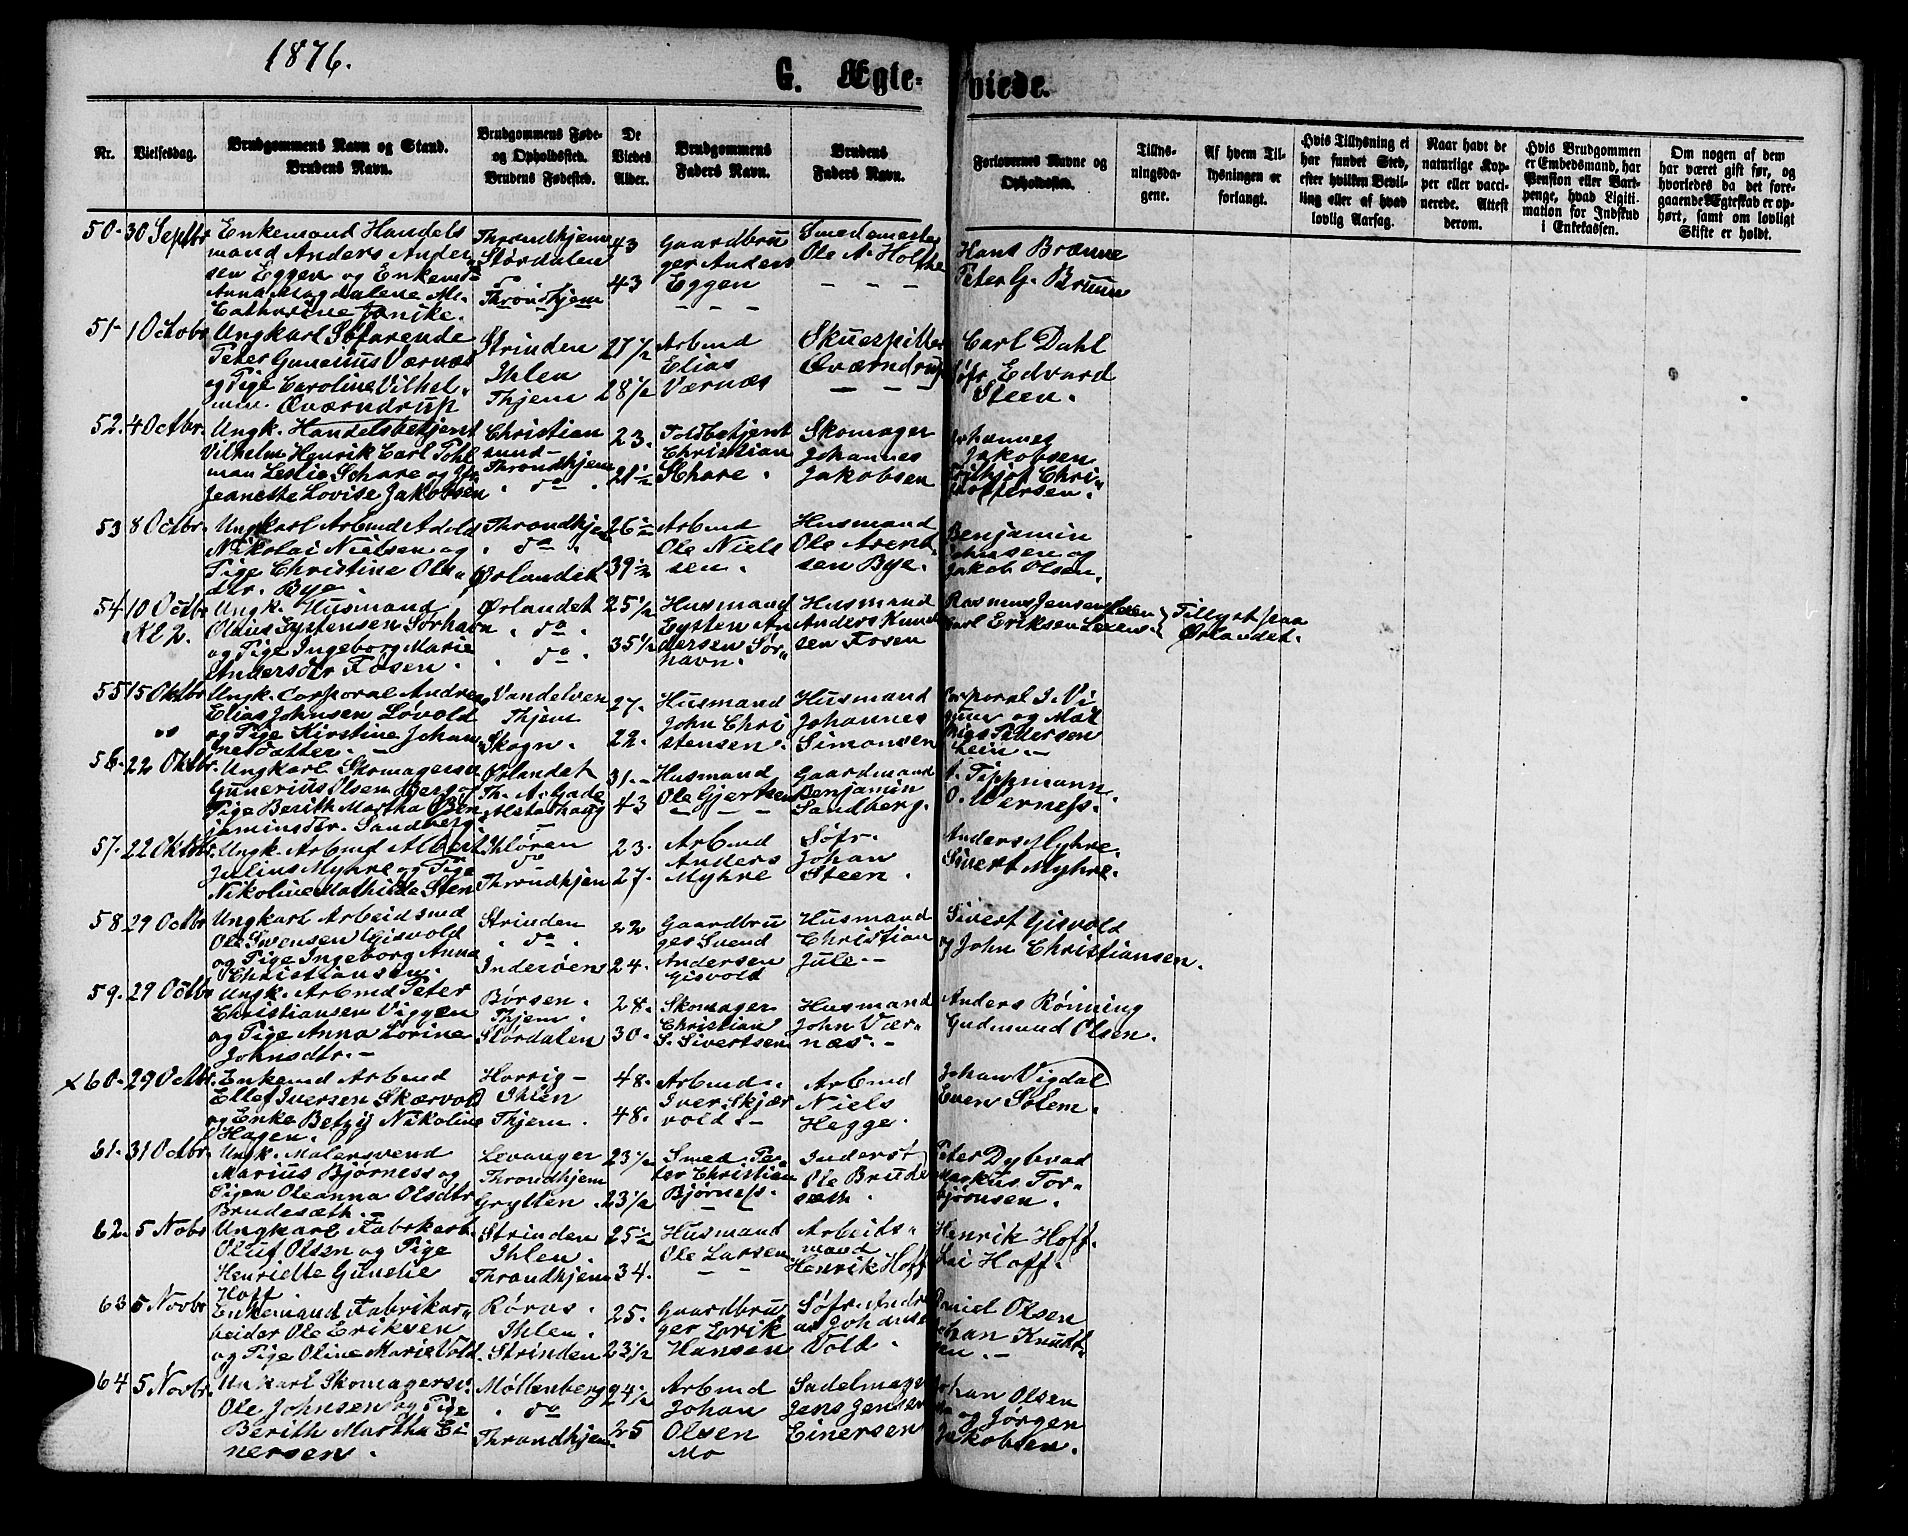 1876.
G. Ægte-
viede.
Nr.
Vielsesdag.
Brudgommens Navn og Stand.
Brudens Navn.
Brudgommens Føde-
og Opholdssted.
Brudens Fødested.
De
Viedes
Alder.
Brudgommens
Faders Navn.
Brudens
Faders Navn.
Forlovernes Navne og
Opholdssted.
Tillys-
ningsda-
gene.
Af hvem Til-
lysningen er
forlangt.
Hvis Tillysning ei
har fundet Sted,
efter hvilken Bevil-
ling eller af hvad
lovlig Aarsag.
Naar havt de
naturlige Kop-
per eller vacci-
nerede. Attest
derom.
Hvis Brudgommen
er Embedsmand, har
Pension eller Vart-
penge, hvad Ligiti-
mation for Indskud
i Enkekassen.
Om nogen af dem
har været gift før, og
hvorledes da det fore-
gaaende Ægteskab er op-
hørt, samt om lovligt
Skifte er holdt.
50- 30 Septbr
Enkemand Handels
mand Anders Ander
sen Eggen og Enkemd
Anna Magdalene M.
Catharine Janike.
Throndhjem
Størdalen
Throndhjem
43
43
Gaardbru
ger Anders
Eggen
Smedemester
Ole A. Holthe
Hans Brænne
Peter G. Bruun
51- 1 Octobr
Ungkarl Søfarende
Peter Gunerius Værnæs
og Pige Caroline Vilhel-
mine Qværndrup
Strinden
Ihlen
Thjem
27 1/2
28 1/2
Arbmd
Elias
Værnæs
Skuespiller
Qværndrup
Carl Dahl
Søfr. Edvard
Steen.
52. 4 Octbr.
Ungk. Handelsbetjent
Vilhelm Henrik Carl Pohl
man Leslie Schare og Pige
Jeanette Lovise Jakobsen
Christian
sund-
Throndhjem
do
23.
21 1/2
Toldbetjent
Christian
Schare.
Skomager
Johannes
Jakobsen
Johannes
Jakobsen
Frithjof Chri-
stoffersen.
53 8 Octbr.
Ungkarl Arbmd Adolf
Nikolai Nielsen og
Pige Christine Ols-
dtr. Bye.
Throndhjem
do
Ørlandet
26 1/2
39 1/2
Arbmd
Ole Niels
sen.
Husmand
Ole Arent
sen Bye.
Benjamin
Johnsen og
Jakob Olsen.
54 10 Octbr
Kl 2.
Ungk. Husmand
Olaus Eystensen Sørhavn
og Pige Ingeborg Marie
Andersdtr Fosen.
Ørlandet
do
do
25 1/2
35 1/2
Husmand
Eysten An
dersen Sør-
havn.
Husmand
Anders Knud
sen Fosen
Rasmus Jensen Leren
Carl Eriksen Lerens
Tillyst paa
Ørlandet.
55 15 Oktbr
Ungk. Corporal Andreas
Elias Johnsen Løvold
og Pige Kirstine Johan
nesdatter.
Vandelven
Thjem
Skogn.
27.
22.
Husmand
John Chri
stensen.
Husmand
Johannes
Simonsen
Corporal I. Vi
gum og
Pedersen
Lein.
56- 22 Oktbr.
Ungkarl Skomagersv.
Gunerius Olsen Berg og
Pige Berith Martha Ben
jaminsdtr. Sandberg
Ørlandet
Th. A. Gade
Alstadhaug
31.-
43
Husmand
Ole Gjertsen
Gaardmand
Benjamin
Sandberg.
A. Tippmann.
O. Werness.
57- 22 Oktbr.
Ungk. Arbmd Albert
Julius Myhre og Pige
Nikoline Mathilda Sten
Ihløren
do
Throndhjem
23.
27.
Arbmd
Anders
Myhre
Søfr.
Johan
Steen.
Anders Myhre.
Sivert Myhre.
58 29 Octbr
Ungkarl Arbeidsmd
Ole Svensen Gisvold
og Pige Ingeborg Anna
Christiansen.
Strinden
do
Inderøen
22
24.
Gaardbru
ger Svend
Andersen
Gisvold
Husmand
Christian
Jule.-
Sivert Gisvold
og John Christiansen.
59. 29 Octbr
Ungk. Arbmd Peter
Christiansen Viggen
og Pige Anna Lorine
Johnsdtr.-
Børsen.
Thjem.
Størdalen
28.
30.
Skomager
Christian
S. Sivertsen
Husmand
John Vær-
næs.-
Anders Rønning
Gudmund Olsen.
x 60- 29 Octbr.
Enkemd Arbmd
Ellef Iversen Skærvold
og Enke Betzy Nikoline
Hagen.
Horrig-
Ihlen
Thjem.
48.
48.
Arbmd.
Iver Skjær
vold.-
Arbmd
Niels
Hegge.
Johan Vigdal
Even Solem.
61- 31 Octbr.
Ungk. Malersvend
Marius Bjørness og
Pigen Oleanna Olsdtr
Brudesæth.-
Levanger
Throndhjem
Grytten.
23 1/2
23 1/2
Smed Pe-
ter Christian
Bjørness.
Inderst
Ole Brude
sæth.
Peter Dybvad
Markus Tor-
bjørnsen.
62. 5 Nobr
Ungkarl Fabrkarb.
Oluf Olsen og Pige
Henriette Gunelie
Hoff
Strinden
Ihlen.
Throndhjem
25 1/2
34.
Husmand
Ole Larsen
Arbeids-
mand
Henrik Hoff
Henrik Hoff.
Hoff.
63 5 Novbr
Enkemand Fabrikar-
beider Ole Eriksen
og Pige Oline Marie Vold.
Røros.
Ihlen.
Strinden
25.
23 1/2
Gaardbru
ger Erik
Hansen
Søfr. Andre
as Johanse
Vold.
Daniel Olsen
Johan Knudt-
sen.-
64 5 Novbr.
Ungkarl Skomagersv.
Ole Johnsen og Pige
Berith Martha Ei
nersen.
Møllenberg
do
Throndhjem
24 1/2
25
Arbmd
Johan
Olsen
Mo
Sadelmager
Jens Jensen
Einersen
Johan Olsen
Mo og Jørgen
Jakobsen.